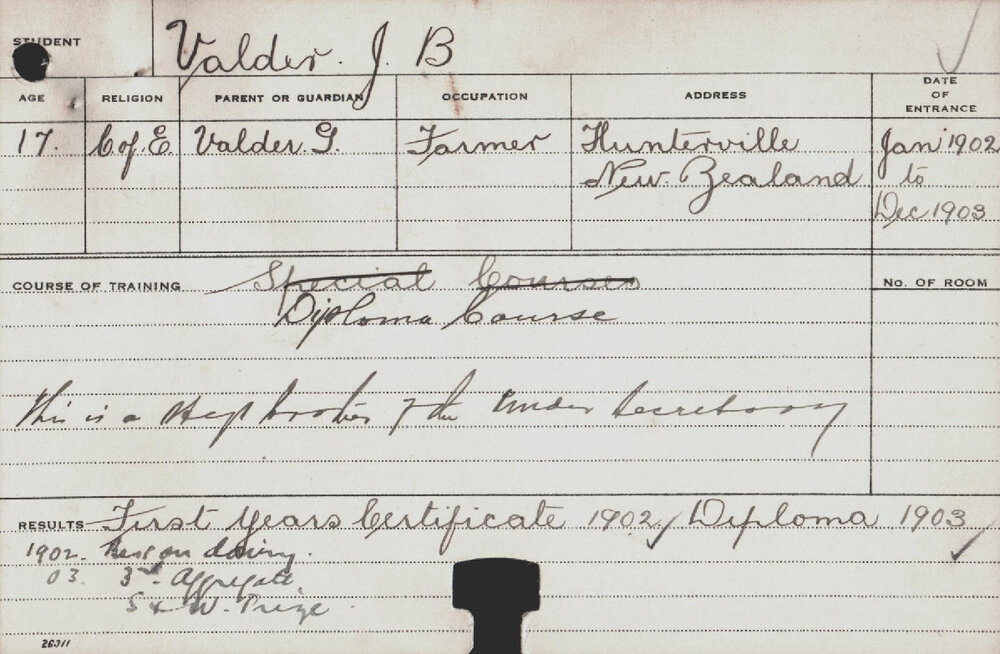 STUDENT Valder. J. B
AGE RELIGION PARENT OR GUARDIAN OCCUPATION ADDRESS DATE OF ENTRANCE
17. C of. E. Valder. G. Farmer Hunterville Jan' 1902
New. Zealand to
Dec 1903
COURSE OF TRAINING Special Courses No. OF ROOM
Diploma Course
This is a step brother of the Under Secretary
RESULTS First Years Certificate 1902, Diploma 1903
1902. on dairy.
03. 3rd. Aggregate
S & W. Prize
26311